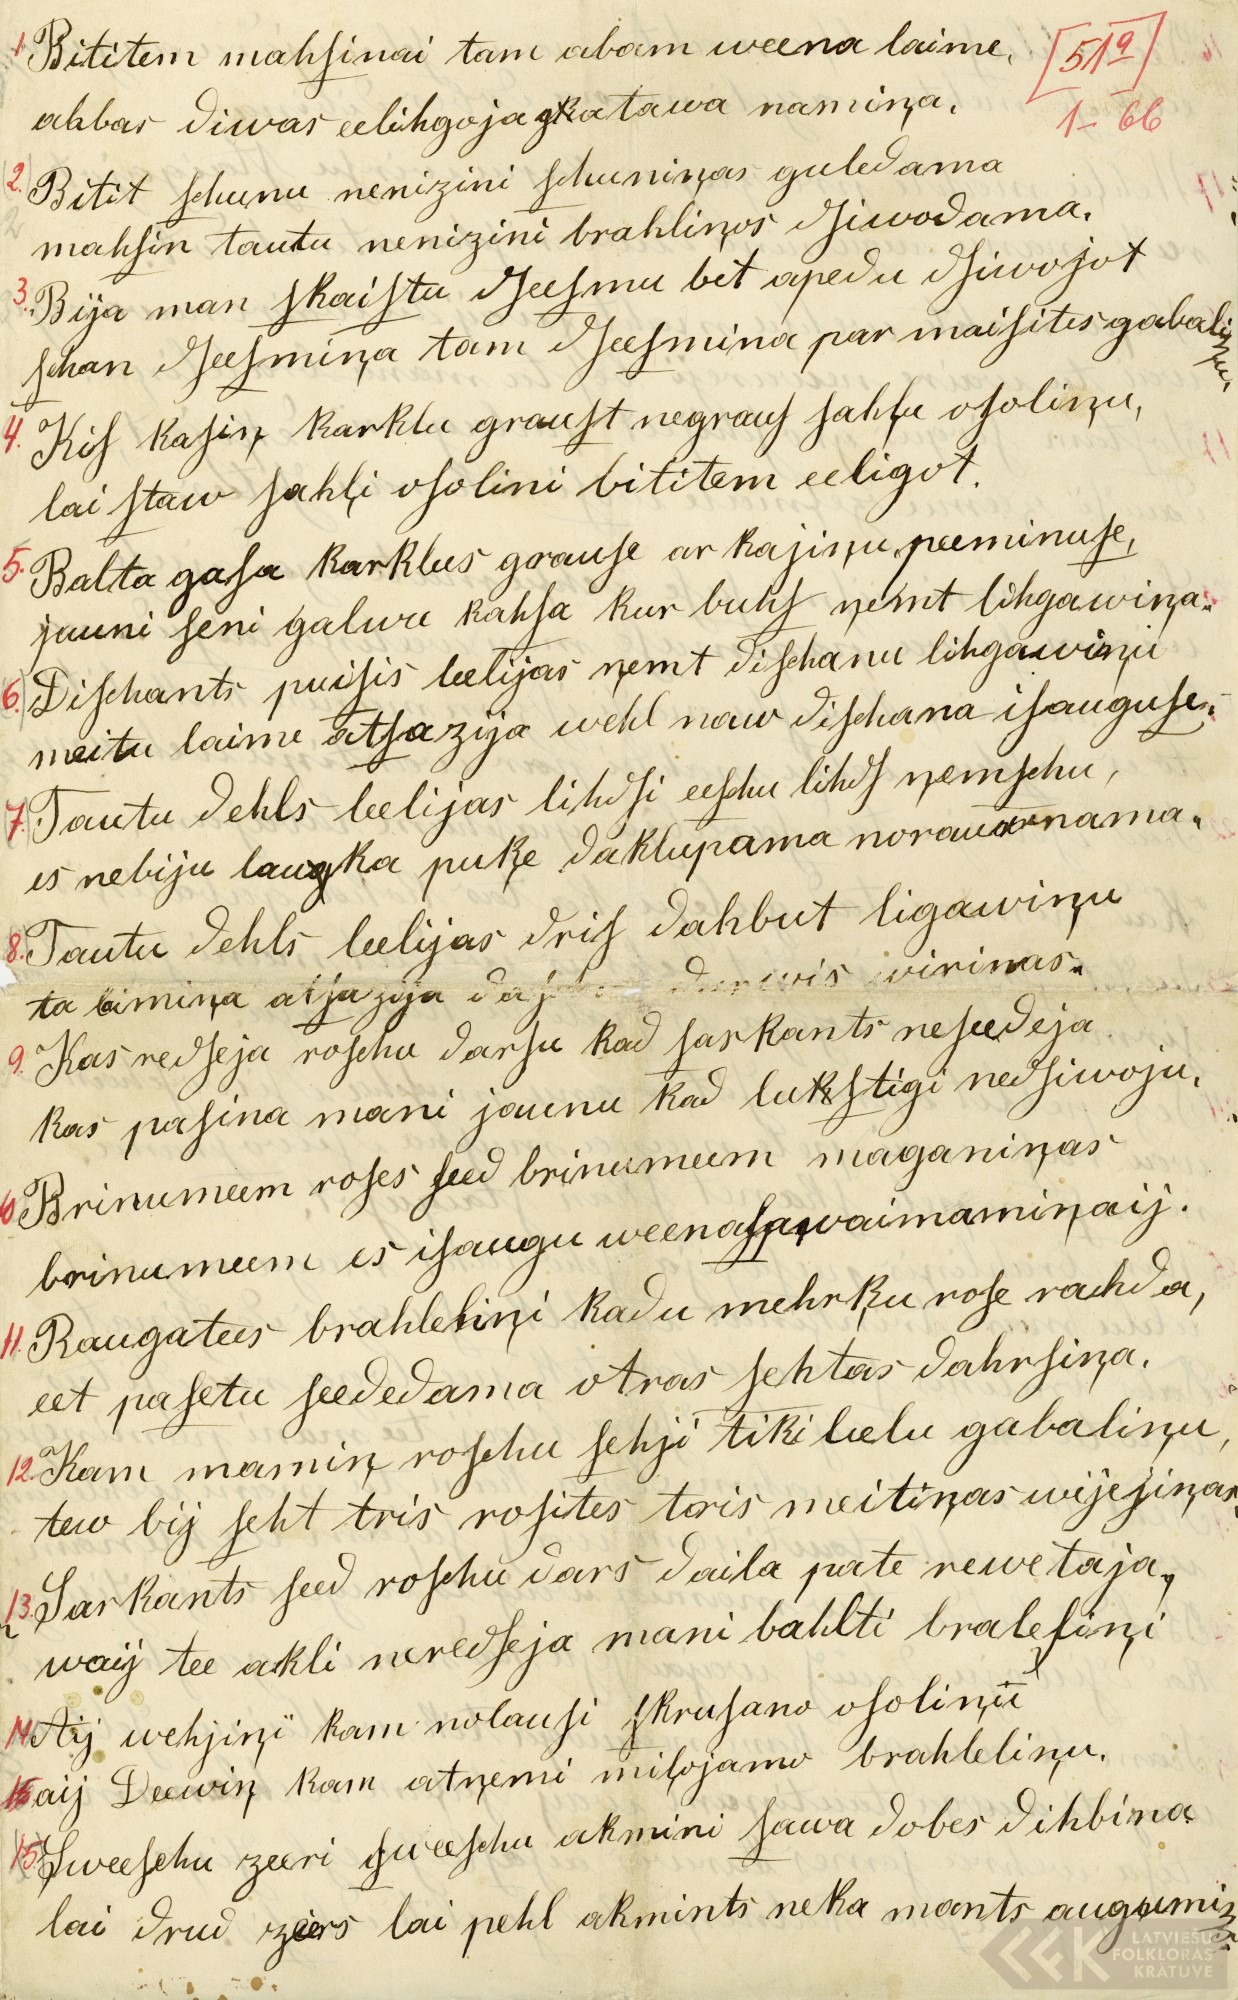 1. Bititem mahſinai tam abam weena laime, [51a]
ahbas diwas eelihgoja katawa namiņa. 1-66
2. Bitit ſchunu nenizini ſchuniņas guledama
mahſin tautu nenizini brahliņos dſiwodama.
3. Bija man ſkaiſtu dſeeſmu bet apedu dſiwojot
ſchan dſeeſmiņa tam dſeeſmina par maiſites gabaliņu.
4. Kiſ kaſiņ karklu grauſt negrauſ ſahļu oſoliņu,
lai ſtaw ſahļi oſolini bititem eeligot.
5. Balta gaſa karklus grauſe ar kajiņu peeminuſe,
jauni ſeni galwu kahſa kur buhſ ņemt lihgawiņa.
6. Diſchants puiſis leelijas ņemt diſchanu lihgawiņu
meitu laime atſazija wehl naw diſchana iſauguſe.
7. Tautu dehls leelijas lihdſi eeſchu lihdſ ņemſchu,
es nebiju lauka puķe daklupama noraunama.
8. Tautu dehls leelijas driſ dahbut ligawiņu
ta laimiņa atſazija durwis wirinas.
9. Kas redſeja roſchu darſu kad ſarkants neſeedeja
kas paſina mani jaunu kad lukſtigi nedſiwoju.
10 Brinumeem roſes ſeed brinumeem maganiņas
brinumeem es iſaugu weena ſawai mamiņaij.
11. Raugatees brahleliņi kadu mehrķu roſe rahda,
eet paſetu ſeededama otras ſehtas dahrſiņa.
12. Kam mamiņ roſchu ſehji tiki leelu gabaliņu,
tew bij ſeht tris roſites tris meitiņas wijeſiņas.
13. Sarkants ſeed roſchu dars daila pate rewetaja,
waij tee akli neredſeja mani bahlti braleliņi
14 Aij wehjiņi kam nolauſi ſkruſano oſoliņu
aij Deewiņ kam atņemi miļojamo brahleliņu.
15 Sweeſchu zeeri ſweeſchu akmini ſawa dobes dihbina
lai drud zeers lai pehl akmints neka mants augumiņ
LATVIEŠU
FOLKLORAS
KRĀTUVE